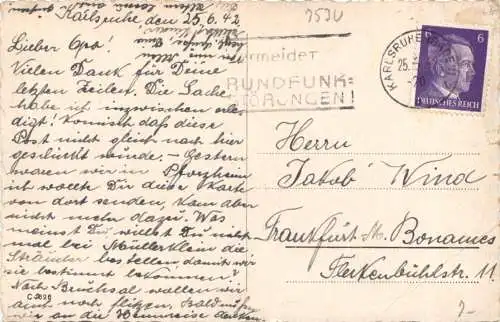 Karlsruhe den 25.6.42.
Lieber Opa!
Vielen Dank für Deine
letzten Zeilen. Die Sache
habe ich inzwischen erle-
digt! Komisch daß diese
Post nicht gleich nach hier
geschickt wurde. – Gestern
waren wir in Pforzheim
ich wollte Dir diese Karte
von dort senden, kam aber
nicht mehr dazu. Was
meinst Du, willst Du nicht
mal bei Müllerklein die
Sträucher bestellen, damit wir
sie bestimmt bekommen?
Nach Bruchsal wollen wir
auch noch flitzen. Bald müssen
wir an die Heimreise denken
C 3020
953U
rmeidet
RUNDFUNK=
TÖRUNGEN!
KARLSRUHE
25.
-20
6
DEUTSCHES REICH
Herrn
Jakob Wind
Frankfurt-M. Bonames
Fleckenbühlstr. 11